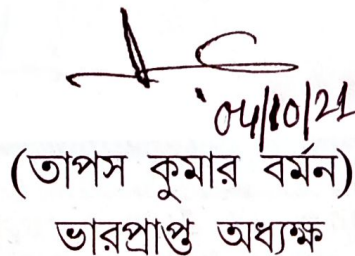 04/10/21
(তাপস কুমার বর্মন)
ভারপ্রাপ্ত অধ্যক্ষ